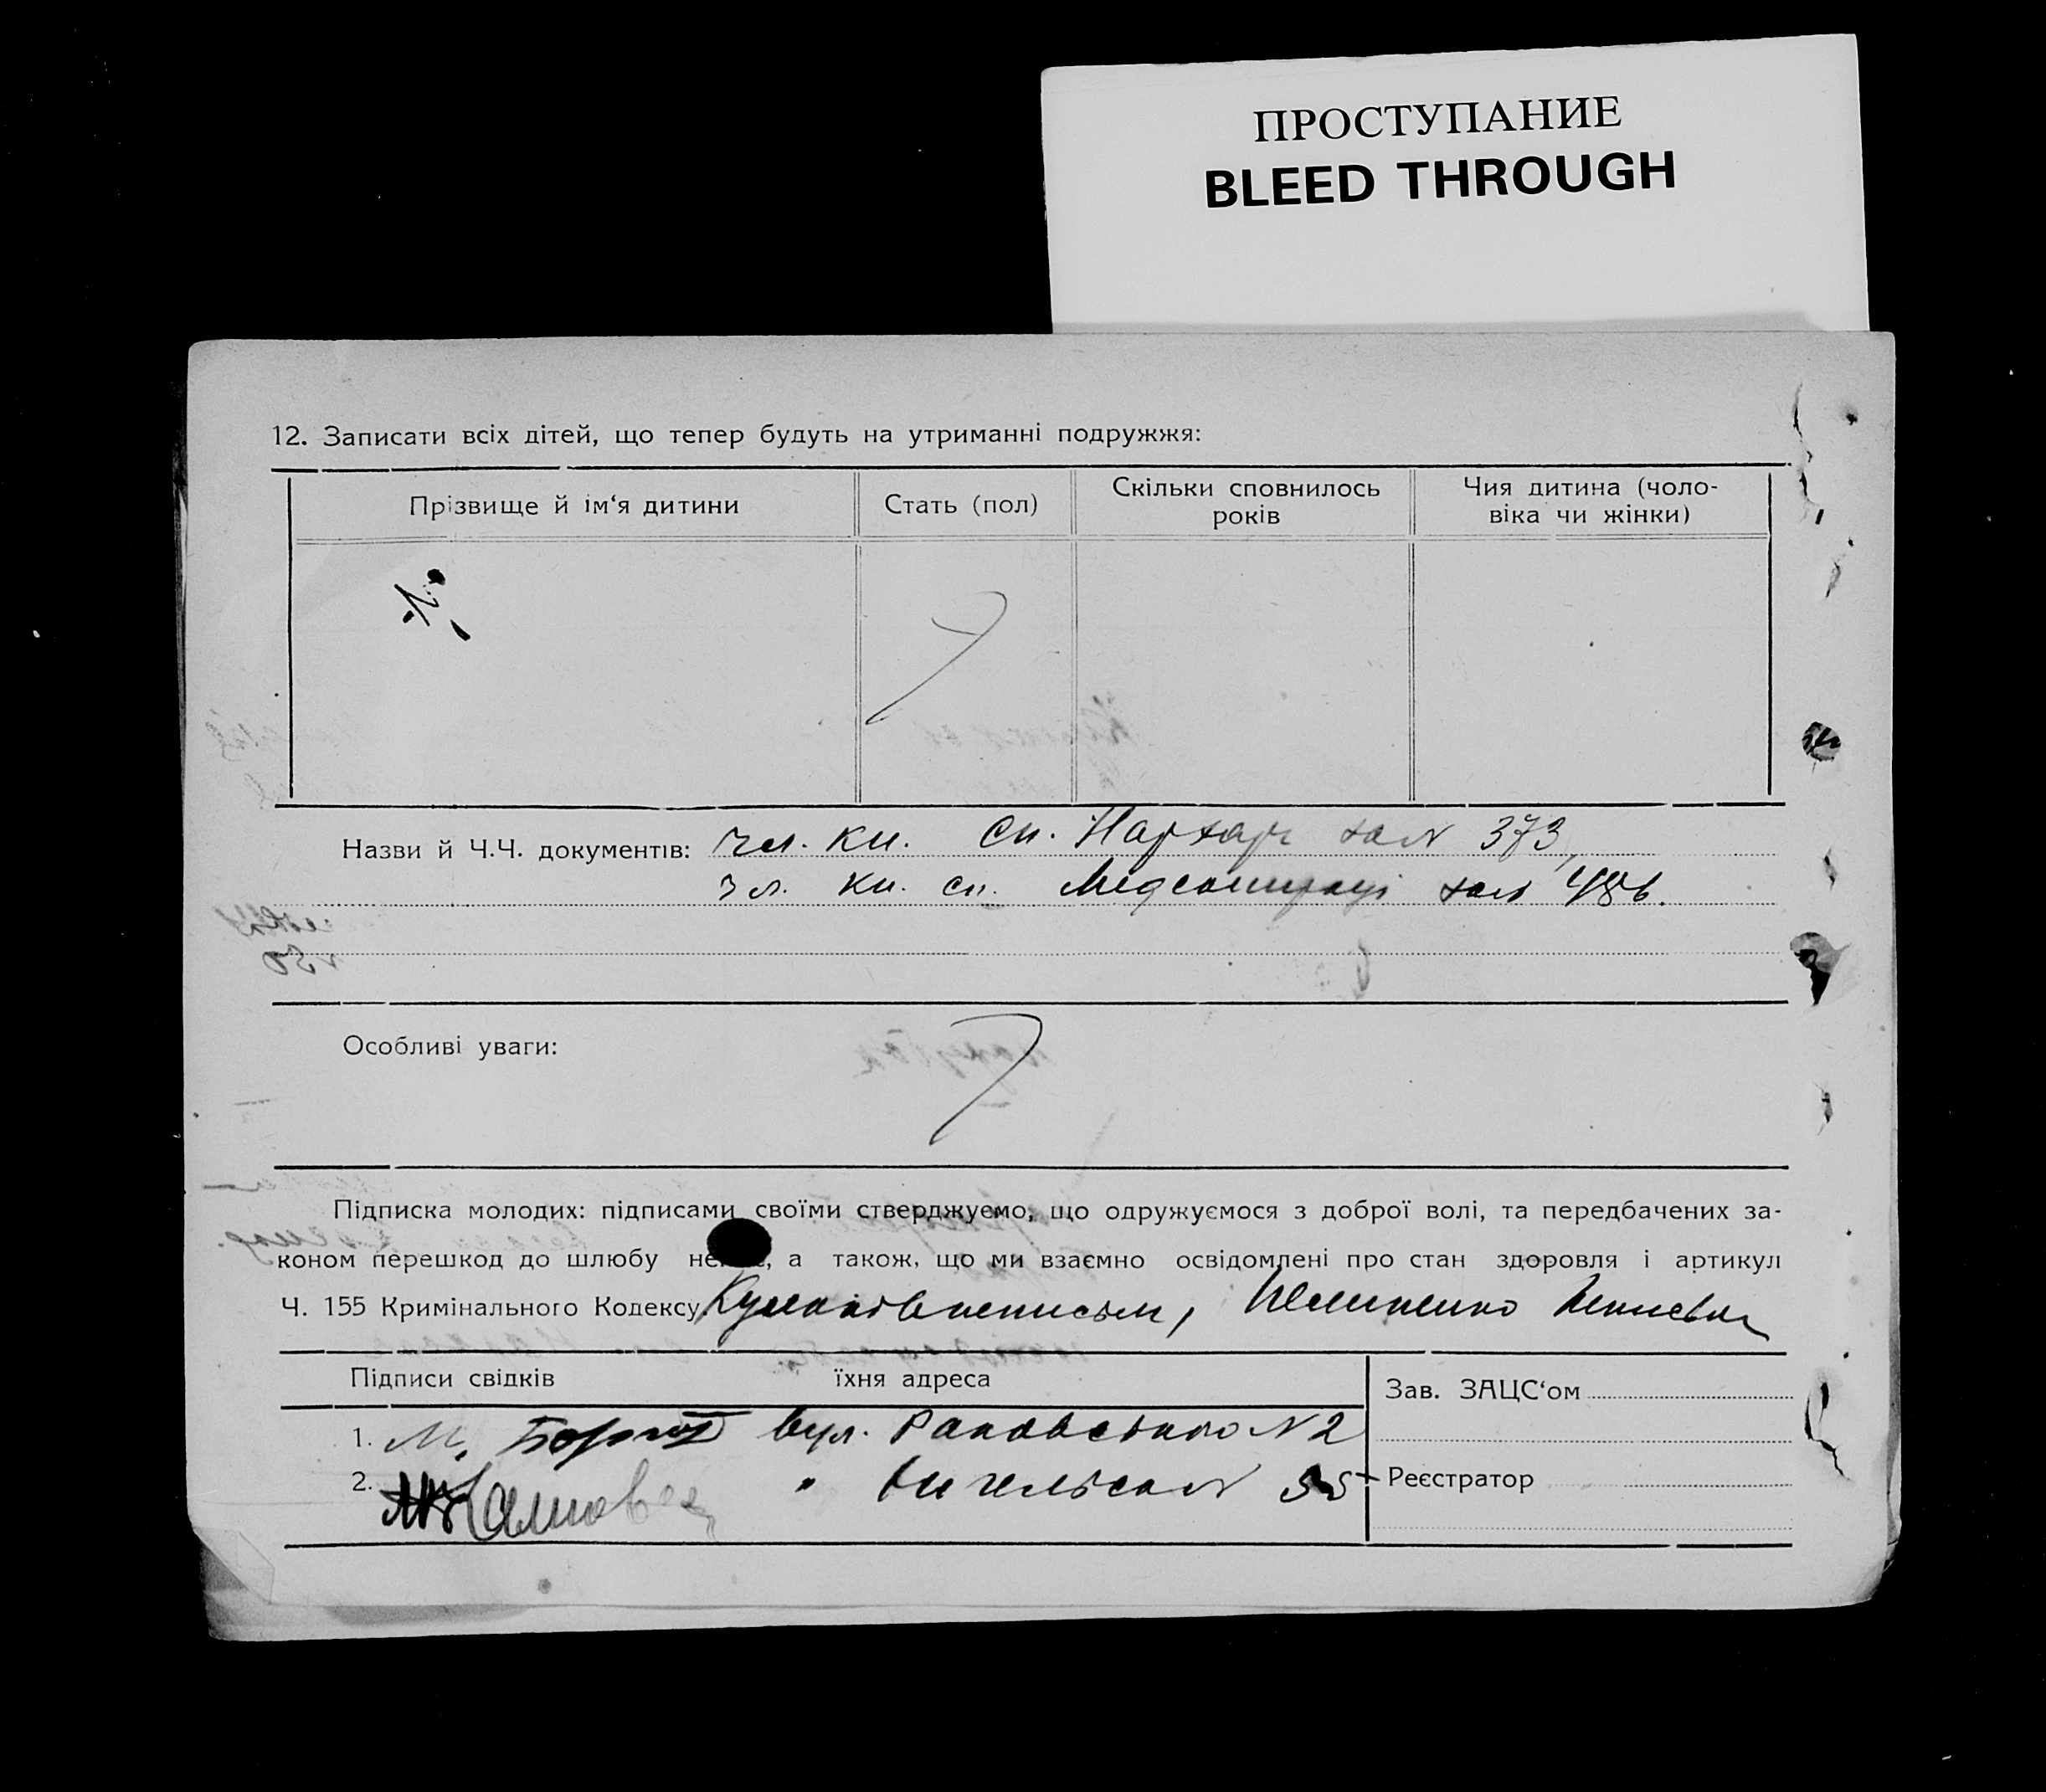 ПРОСТУПАНИЕ
BLEED THROUGH
12. Записати всіх дітей, що тепер будуть на утриманні подружжя:
Прізвище й ім‘я дитини
Стать (пол)
Скільки сповнилось
років
Чия дитина (чоло-
віка чи жінки)
Назви й Ч.Ч. документів: чл. кн. сп. Нархарч за № 373,
чл. кн. сп. за № 486.
Особливі уваги:
Підписка молодих: підписами своїми стверджуємо, що одружуємося з доброї волі, та передбачених за-
коном перешкод до шлюбу а також, що ми взаємно освідомлені про стан здоровля і артикул
Ч. 155 Кримінального Кодексу
Підписи свідків їхня адреса
1. М. вул. Раковського № 2
2. " Енгельса № 35
Зав. ЗАЦС‘ом
Реєстратор